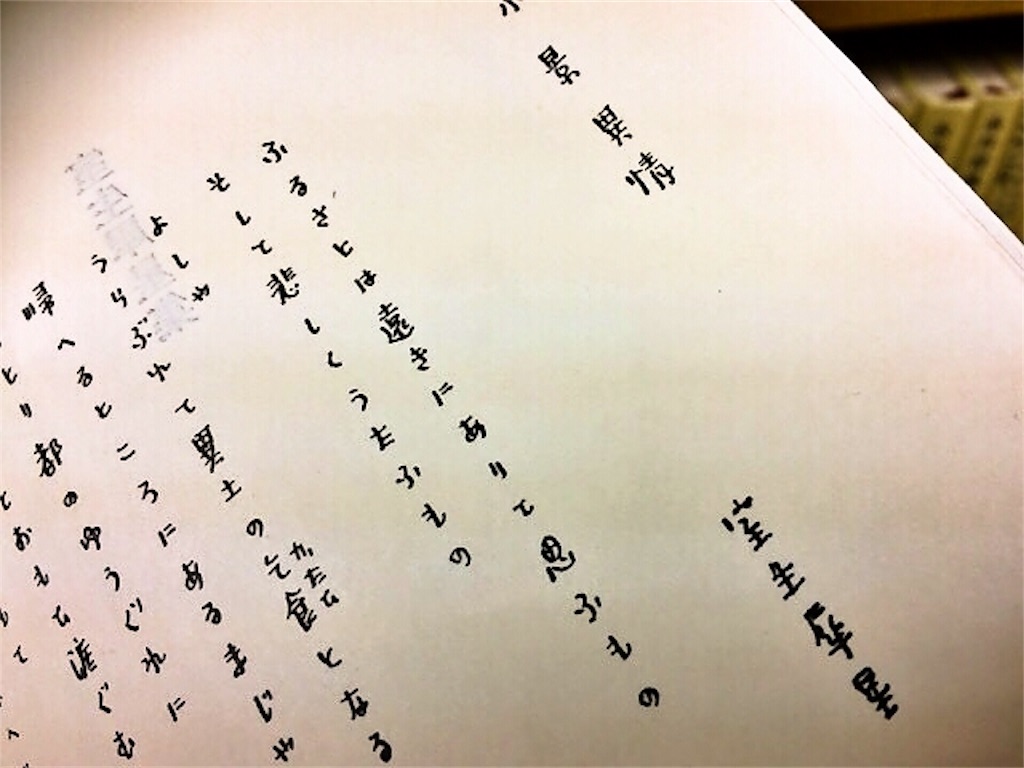 小景異情
室生犀星
ふるさとは遠きにありて思ふもの
そして悲しくうたふもの
よしや
うらぶれて異土の乞食となる
かたひ
帰へるところにあるまじや
とり都のゆうぐれに
とおもひ涙ぐむ
もて